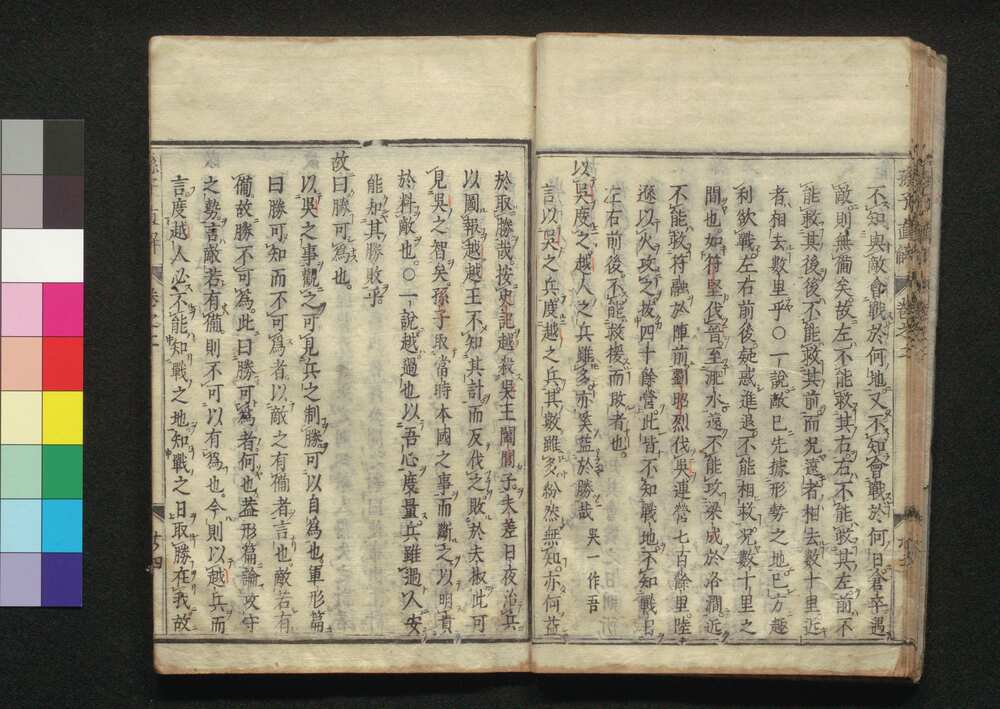 不知與敵會戰於何地又不知會戰於何日倉卒遇
敵則無備矣故左不能救其右右不能救其左前不
能救其後後不能救其前而況遠者相去數十里近
者相去數里乎○一說敵已先據形勢之地已方趨
利欲戰左右前後疑惑進退不能相救況數十里之
間也如符堅伐晉至淝水遠不能攻梁成於洛澗近
不能救符融於陣前劉昭烈伐吳連營七百餘里陸
遜以火攻之拔四十餘營此皆不知戰地不知戰日
左右前後不能救援而敗者也
以吳度之越人之兵雖多亦奚益於勝哉 吳一作吾
言以吳之兵度越之兵其數雖多紛然無知亦何益
於取勝哉按史記越殺吳王闔閭子夫差日夜治兵
以圖報越越王不知其計而反伐之敗於夫椒此可
見吳之智矣孫子取當時本國之事而斷之以明責
於料敵也○一說越過也以吾心度量兵雖過人安
能知其勝敗乎
故曰勝可為也
以吳之事觀之可見兵之制勝可以自為也軍形篇
曰勝可知而不可為者以敵之有備者言也敵若有
備故勝不可為此曰勝可為者何也蓋形篇論攻守
之勢言敵若有備則不可以有為也今則以越兵而
言度越人必不能知戰之地知戰之日取勝在我故